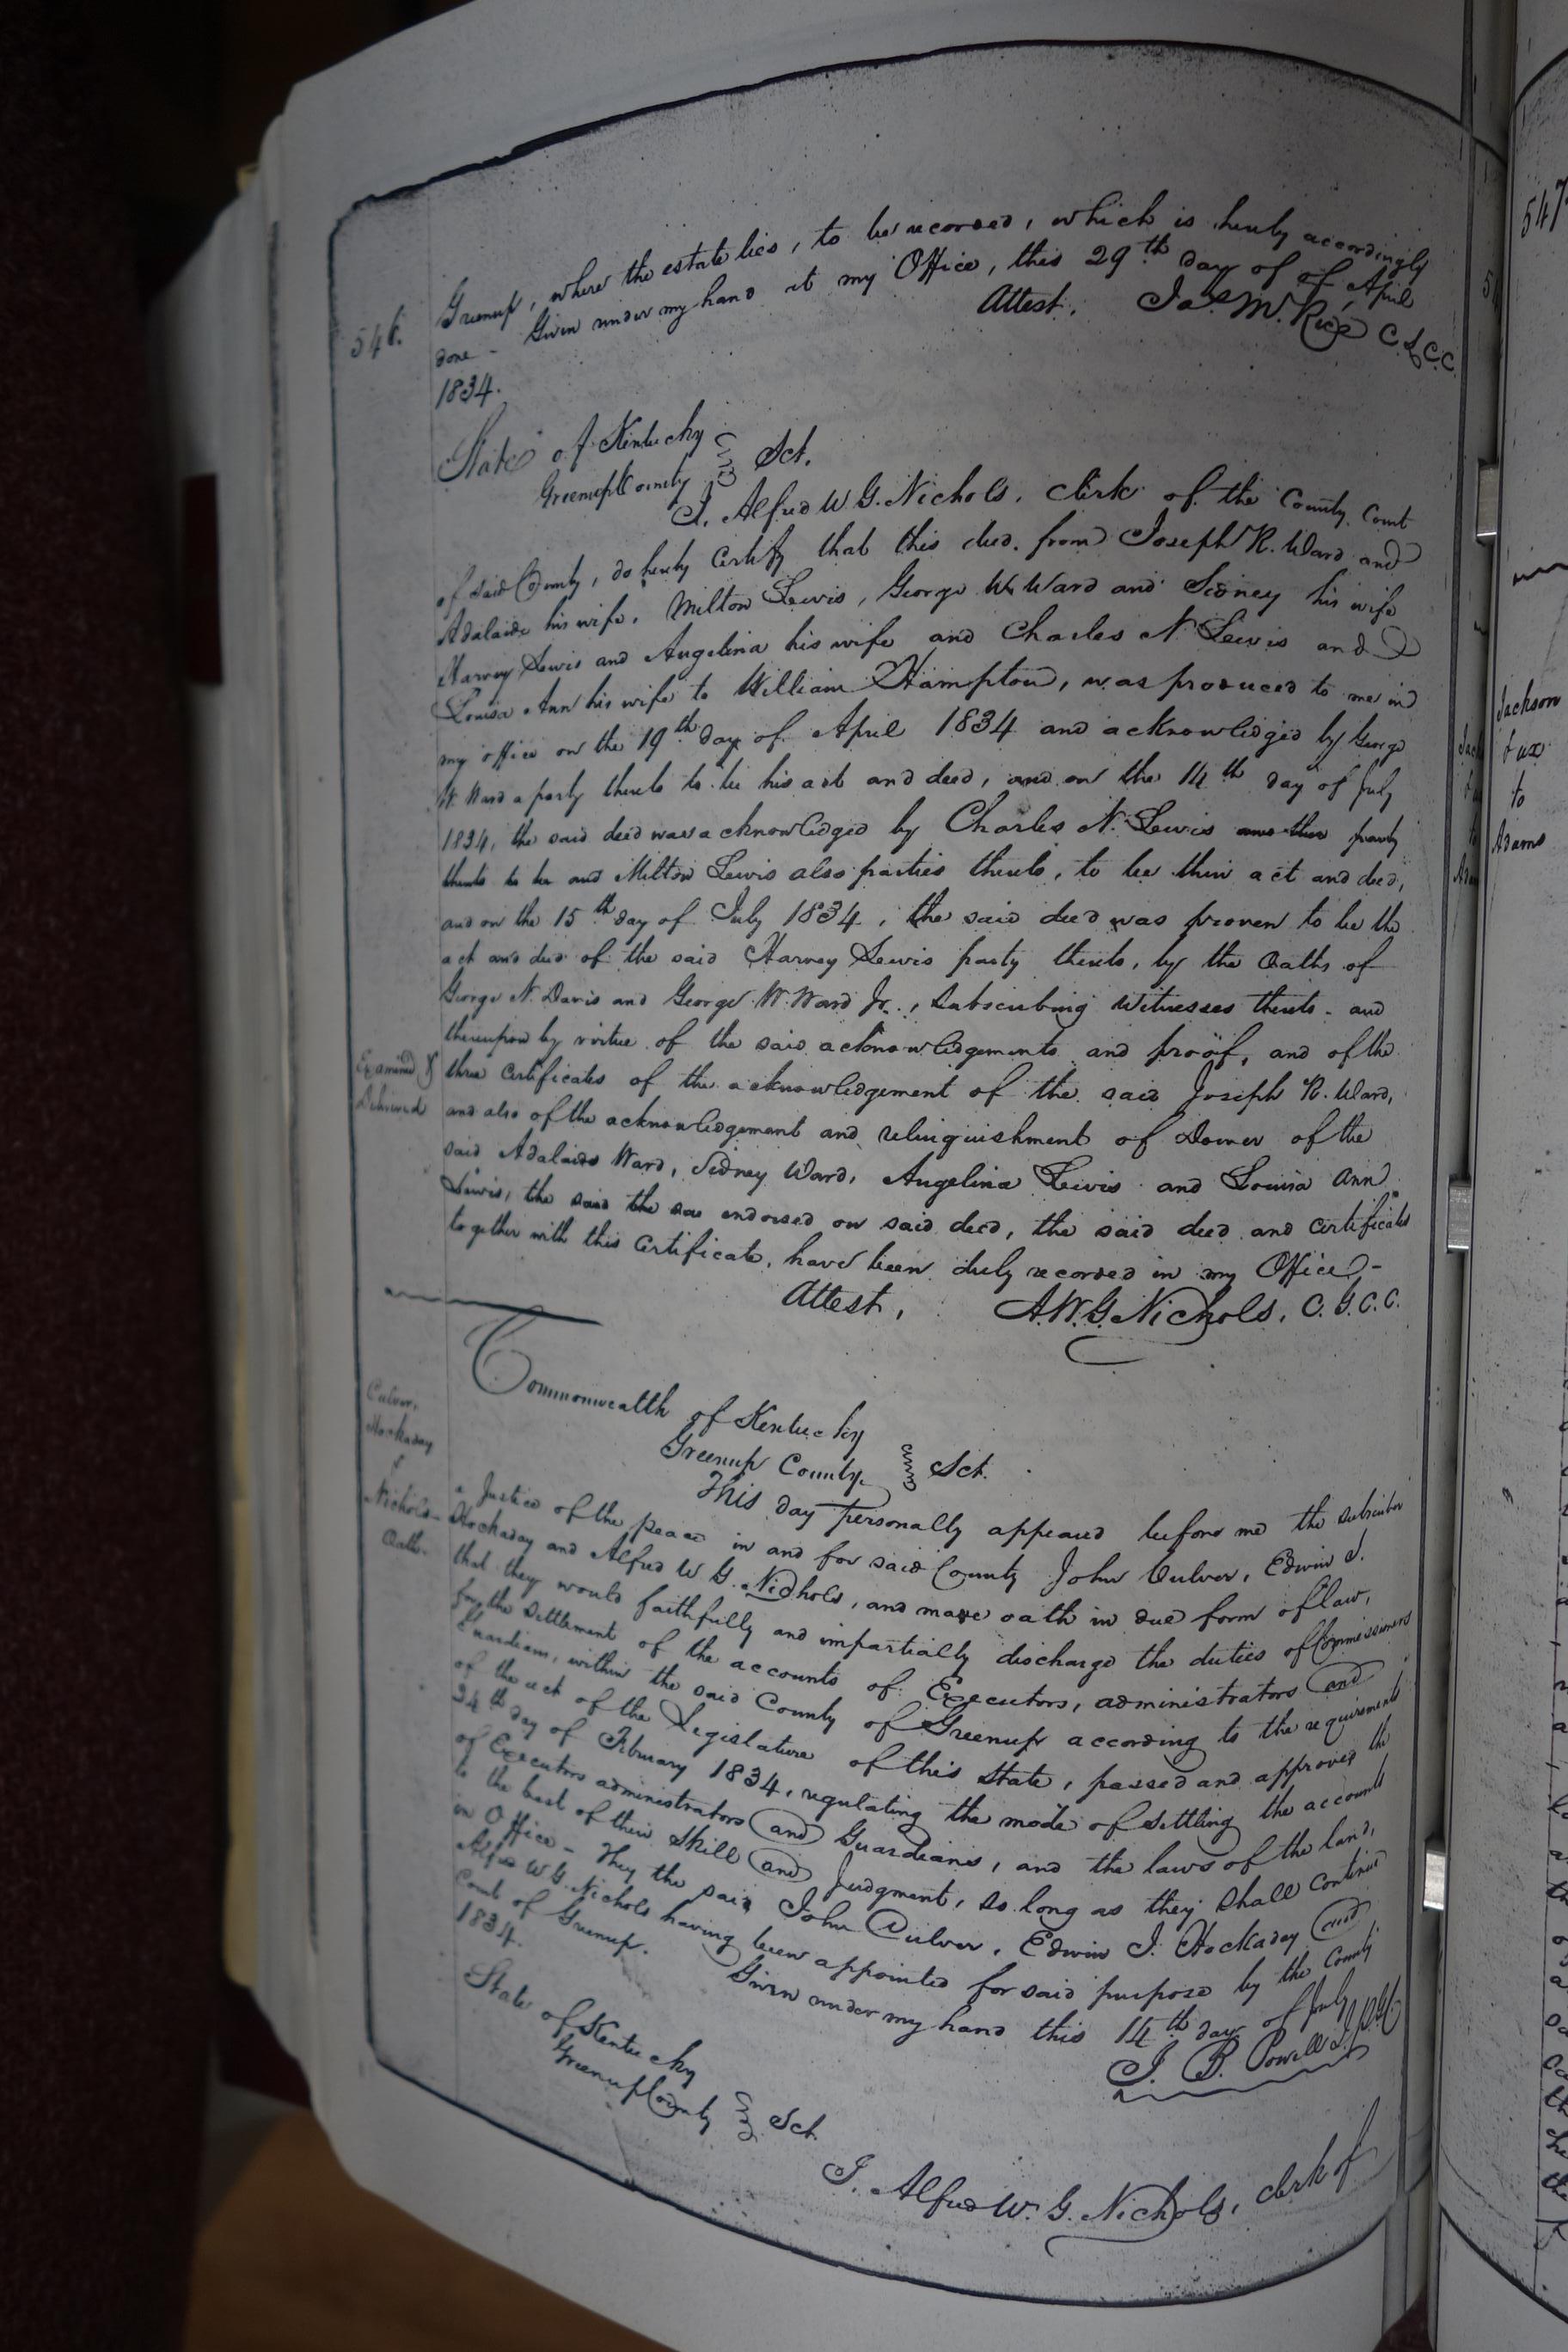 546.
Greenup, where the estate lies, to be recorded, which is hereby accordingly
done - Given under my hand at my Office, this 29th day of of April
1834.
Attest. Jas. M. Rice C.L.C.C.
State of Kentucky
Greenup County Sct.
I, Alfred W. G. Nichols, Clerk of the County Court
of said County, do hereby Certify that this deed from Joseph R. Ward and
Adalaide his wife, Milton Lewis, George W. Ward and Sidney his wife
Harvey Lewis and Angelina his wife and Charles N. Lewis and
Louisa Ann his wife to William Hampton, was produced to me in
my office on the 19th day of April 1834 and acknowledged by George
W. Ward a party thereto to be his act and deed, and on the 14th day of July
1834, the said deed was acknowledged by Charles N. Lewis another party
thereto to be and Milton Lewis also parties thereto, to be their act and deed,
and on the 15th day of July 1834, the said deed was proven to be the
act and deed of the said Harvey Lewis party thereto, by the Oaths of
George N. Davis and George W. Ward Jr., Subscribing Witnesses thereto - and
thereupon by virtue of the said acknowledgements and proof, and of the
Examined &
Delivered
three Certificates of the acknowledgement of the said Joseph R. Ward,
and also of the acknowledgement and relinquishment of Dower of the
said Adalaide Ward, Sidney Ward, Angelina Lewis and Louisa Ann
Lewis, the said the endorsed on said deed, the said deed and Certificates
together with this Certificate, have been duly recorded in my Office -
Attest, A.W.G. Nichols, C.G.C.C.
Culver,
Hockaday
&
Nichols-
Oath.
Commonwealth of Kentucky
Greenup County Sct.
This day personally appeared before me the subscriber
a Justice of the peace in and for said County John Culver, Edwin J.
Hockaday and Alfred W G. Nichols, and made oath in due form of law,
that they would faithfully and impartially discharge the duties of Commissioners
for the settlement of the accounts of Executors, administrators and
Guardians, within the said County of Greenup according to the requirements
of the act of the Legislature of this State, passed and approved the
24th day of February 1834, regulating the mode of settling the accounts
of Executors administrators and Guardians, and the laws of the land,
to the best of their skill and Judgment, so long as they shall continue
in Office - They the said John Culver, Edwin J. Hockaday and
Alfred W G. Nichols having been appointed for said purpose by the County
Court of Greenup. Given under my hand this 14th day of July
1834.
J. B. Powell
State of Kentucky
Greenup County Sct
I, Alfred W. G. Nichols, clerk of
547
Jackson
& ux
to
Adams